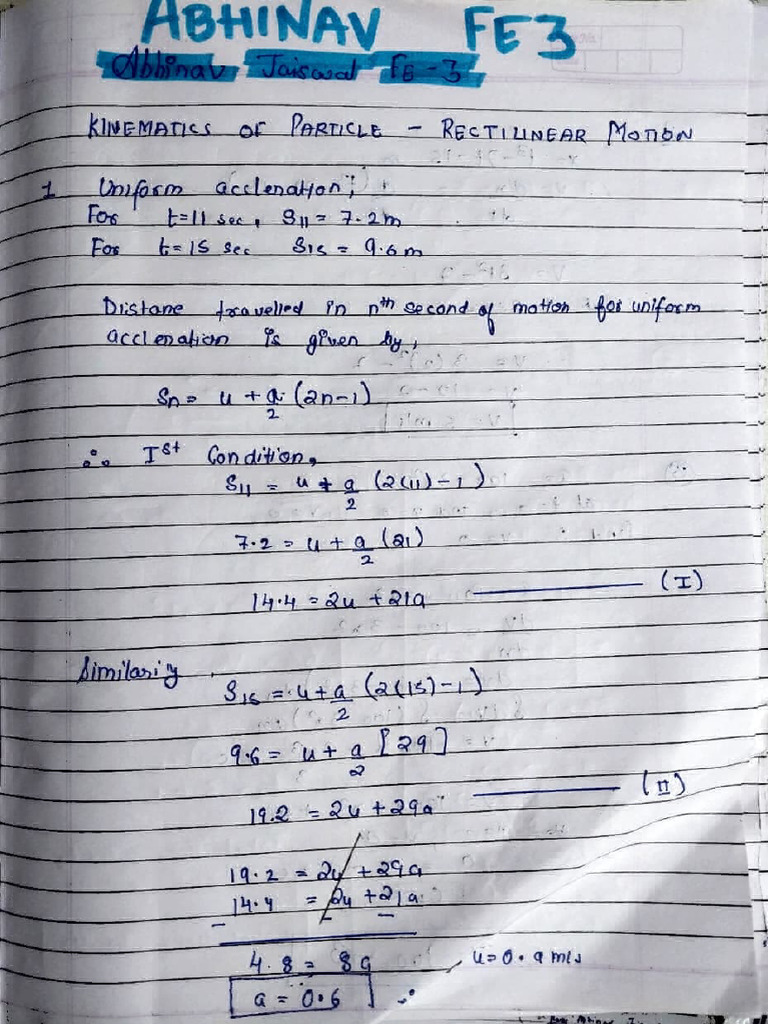 ABHINAV FE3
Abhinav Jaiswal FE-3
KINEMATICS OF PARTICLE - RECTILINEAR MOTION
1 Uniform accleration;
For t=11 sec, S11 = 7.2m
For t=15 sec S15 = 9.6m
Distane travelled in nth second of motion for uniform
accleration is given by,
Sn = u + a/2 (2n-1)
∴ Ist Condition,
S11 = u + a/2 (2(11)-1)
7.2 = u + a/2 (21)
14.4 = 2u + 21a ——— (I)
Similarly
S15 = u + a/2 (2(15)-1)
9.6 = u + a/2 [29]
19.2 = 2u + 29a ——— (II)
19.2 = 2u + 29a
14.4 = 2u + 21a
- - -
4.8 = 8a u=0.9 m/s
a = 0.6